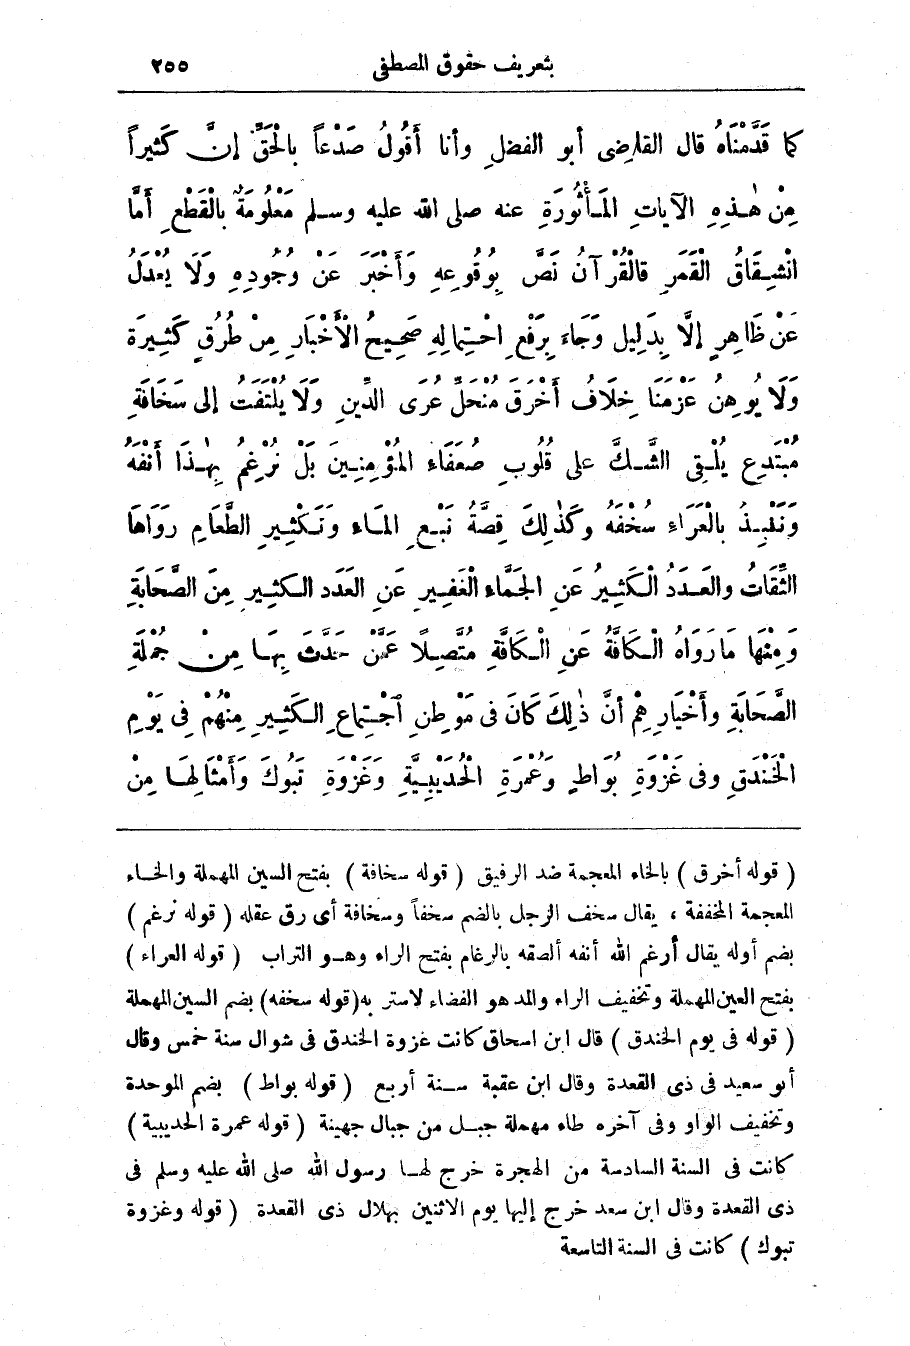 بتعريف حقوق المصطفى ٢٥٥
كما قَدَّمْنَاهُ قال القاضِى أبو الفضلِ وأنا أَقُولُ صَدْعاً بِالْحَقِّ إنَّ كَثيراً
مِنْ هٰـذِهِ الآيَاتِ المَـأْثُورَةِ عنه صلى الله عليه وسـلم مَعْلُومَةٌ بالْقَطْعِ أَمَّا
انْشِـقَاقُ الْقَمَرِ فالْقُرْآنُ نَصَّ بِوُقُوعِهِ وَأَخْبَرَ عَنْ وُجُودِهِ وَلَا يُعْدَلُ
عَنْ ظَاهِرٍ إلَّا بِدَلِيلٍ وَجَاءَ بِرَفْعِ احْتِمَالِهِ صَحِيحُ الْأَخْبَارِ مِنْ طُرُقٍ كَثِيرَةٍ
وَلَا يُوهِنُ عَزْمَنَا خِلَافُ أَخْرَقَ مُنْحَلِّ عُرَى الدِّينِ وَلَا يُلْتَفَتُ إلى سَخَافَةِ
مُبْتَدِعٍ يُلْـقِى الشَّـكَّ على قُلُوبِ ضُعَفَاءِ المُؤْمِنِـينَ بَلْ نُرْغِمُ بِهٰـذَا أَنْفَهُ
وَنَنْبِـذُ بالْعَرَاءِ سُخْفَهُ وَكَذٰلِكَ قِصَّةُ نَبْـعِ المَـاءِ وَتَكْثِيرِ الطَّعَامِ رَوَاهَا
الثِّقَاتُ والعَـدَدُ الْكَثِيرُ عَنِ الجَمَّاءِ الْغَفِيرِ عَنِ العَدَدِ الكَثِيرِ مِنَ الصَّحَابَةِ
وَمِنْهَا مَا رَوَاهُ الْكَافَّةُ عَنِ الْكَافَّةِ مُتَّصِـلًا عَمَّنْ حَدَّثَ بِهَـا مِنْ جُمْلَةِ
الصَّحَابَةِ وأَخْيَارِهِمْ أَنَّ ذٰلِكَ كَانَ فى مَوْطِنِ ٱجْتِماعِ الكَثِيرِ مِنْهُمْ فى يَوْمِ
الْخَنْدَقِ وفى غَزْوَةِ بُوَاطٍ وَعُمْرَةِ الْحُدَيْبِيَّةِ وَغَزْوَةِ تَبُوكَ وَأَمْثَالِهَـا مِنْ
( قوله أخرق ) بالخاء المعجمة ضد الرفيق ( قوله سخافة ) بفتح السين المهملة والخـاء
المعجمة المخففة ، يقال سخف الرجل بالضم سخفاً وسخافة أى رق عقله ( قوله نرغم )
بضم أوله يقال أرغم الله أنفه ألصقه بالرغام بفتح الراء وهـو التراب ( قوله العراء )
بفتح العين المهملة وتخفيف الراء والمد هو الفضاء لاستر به(قوله سخفه) بضم السين المهملة
( قوله فى يوم الخندق ) قال ابن اسحاق كانت غزوة الخندق فى شوال سنة خمس وقال
أبو سعيد فى ذى القعدة وقال ابن عقبة سـنة أربع ( قوله بواط ) بضم الموحدة
وتخفيف الواو وفى آخره طاء مهملة جبـل من جبال جهينة ( قوله عمرة الحديبية )
كانت فى السنة السادسة من الهجرة خرج لهـا رسول الله صلى الله عليه وسلم فى
ذى القعدة وقال ابن سعد خرج إليها يوم الاثنين بهلال ذى القعدة ( قوله وغزوة
تبوك ) كانت فى السنة التاسعة